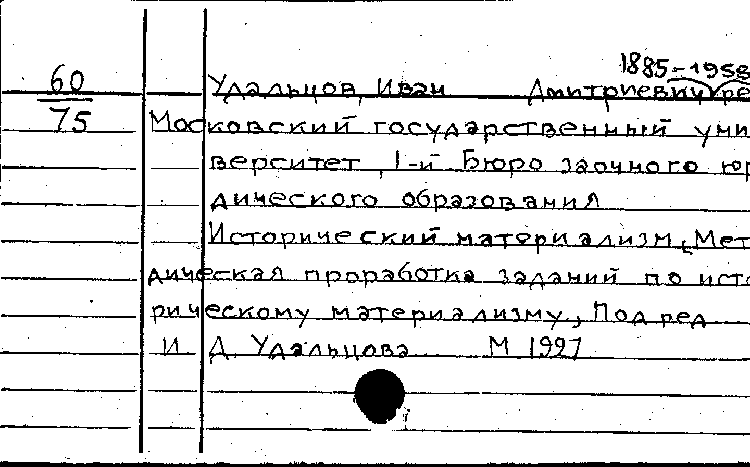 1885-1958
60 Удальцов, Иван Дмитриевич ре
75 Московский государственный уни
верситет, 1-й Бюро заочного юр
дического образования
Исторический материализм, Мет
дическая проработка заданий по ист
рическому материализму, Под ред
И Д Удальцова М 1927